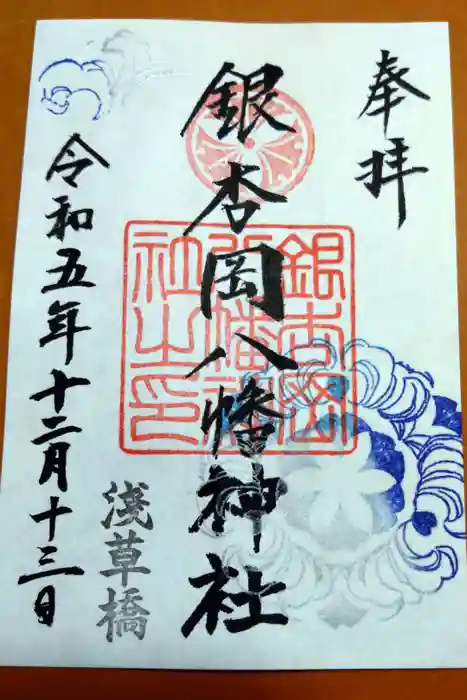 奉拝
銀杏岡八幡神社
銀杏岡八幡神社之印
令和五年十二月十三日
浅草橋